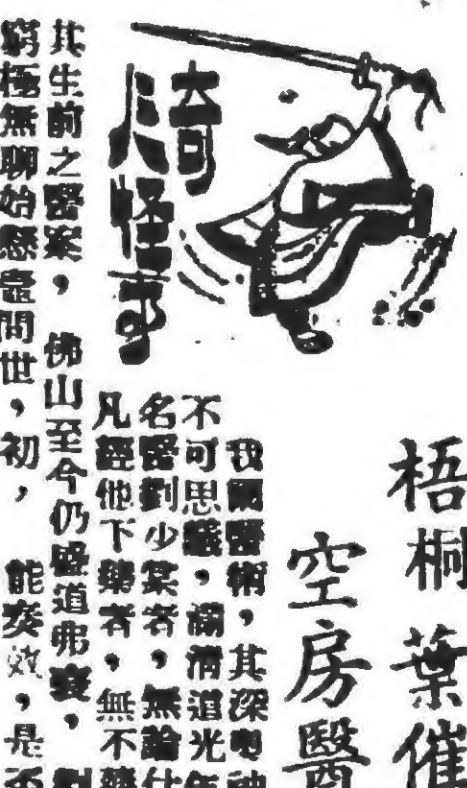 梧桐葉催
空房醫
奇
人怪事
我國醫術，其深奧神
不可思議。滿清道光年
名醫劉少棠者，無論什
凡經他下藥者，無不藥
其生前之醫案，佛山至今仍盛道弗衰，劉
窮極無聊始懸壺問世，初，能奏效，是否